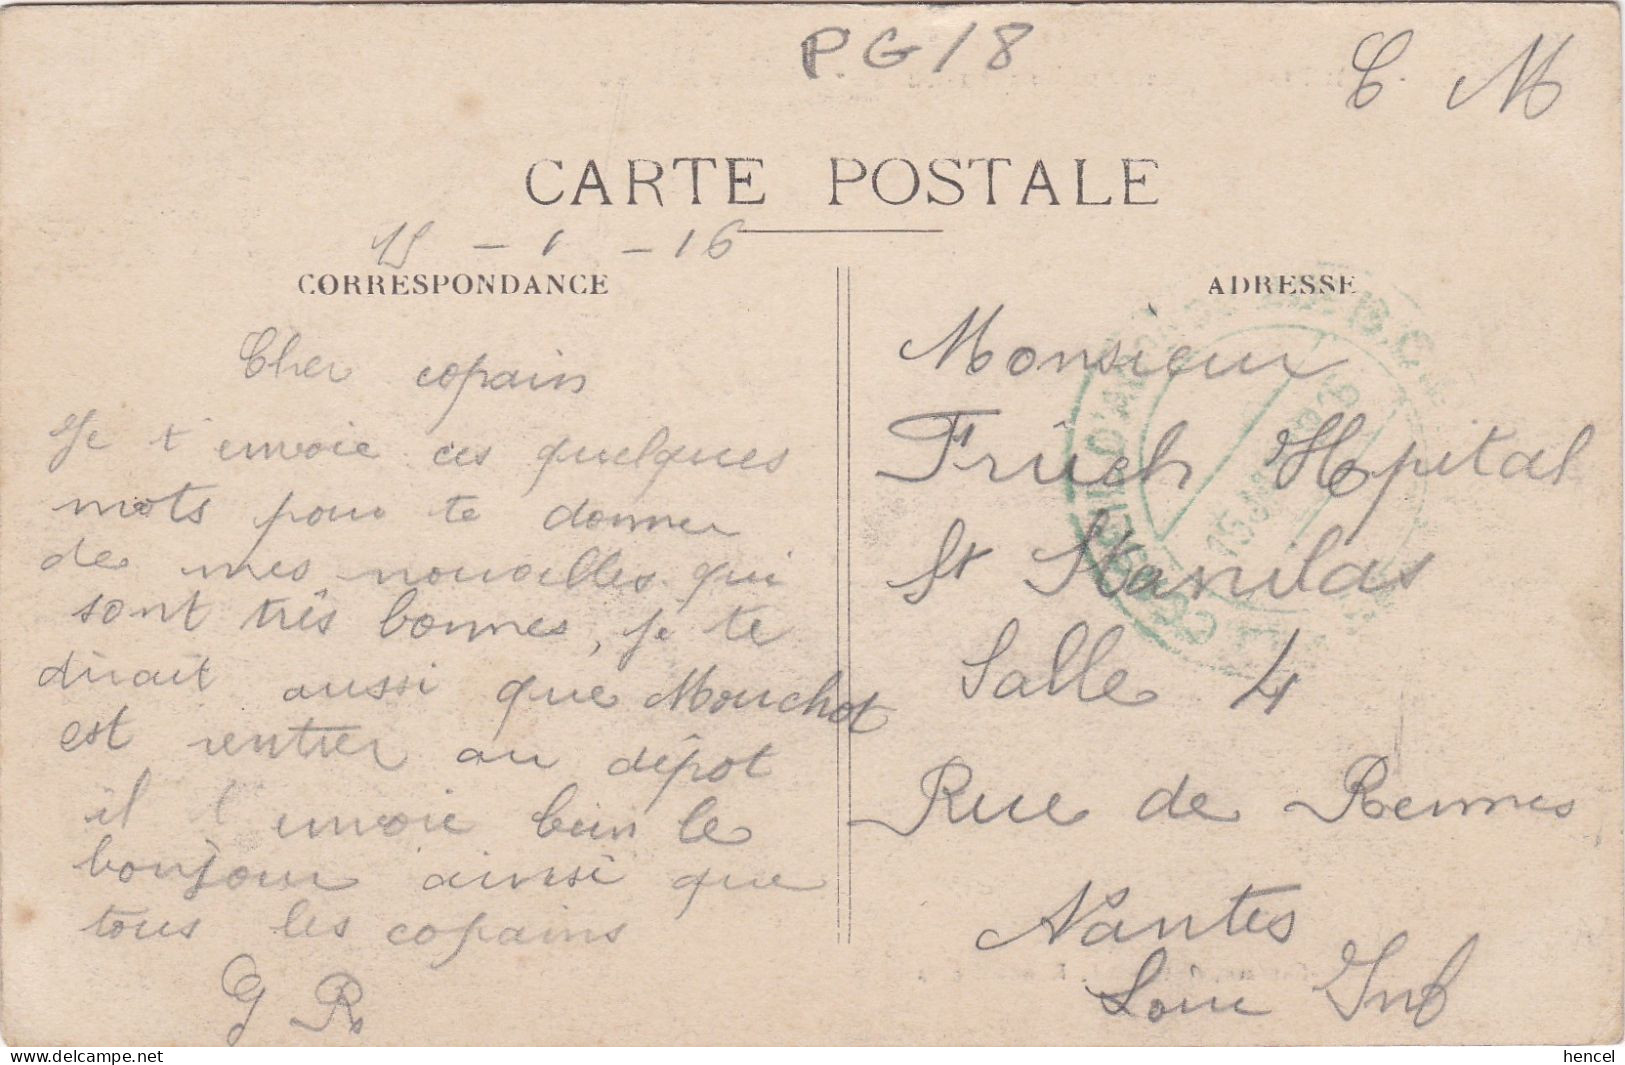 P.G/8
C. M
CARTE POSTALE
15 - 1 - 16
CORRESPONDANCE
Cher copain
Je t'envoie ces quelques
mots pour te donner
de mes nouvelles qui
sont très bonnes, je te
dirait aussi que Mouchot
est rentrer au dépot
il t'envoie bien le
bonjour ainsi que
tous les copains
G R
ADRESSE
Monsieur
Früch Hopital
St Stanilas
Salle 4
Rue de Rennes
Nantes
Loire Inf
hencel
delcampe.net